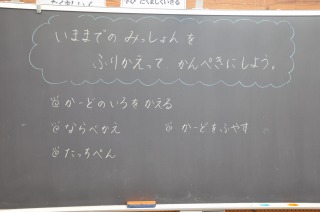 いままでの みっしょんを
ふりかえって かんぺきにしよう。
かーどのいろをかえる
ならべかえ
かーどをふやす
たっちぺん